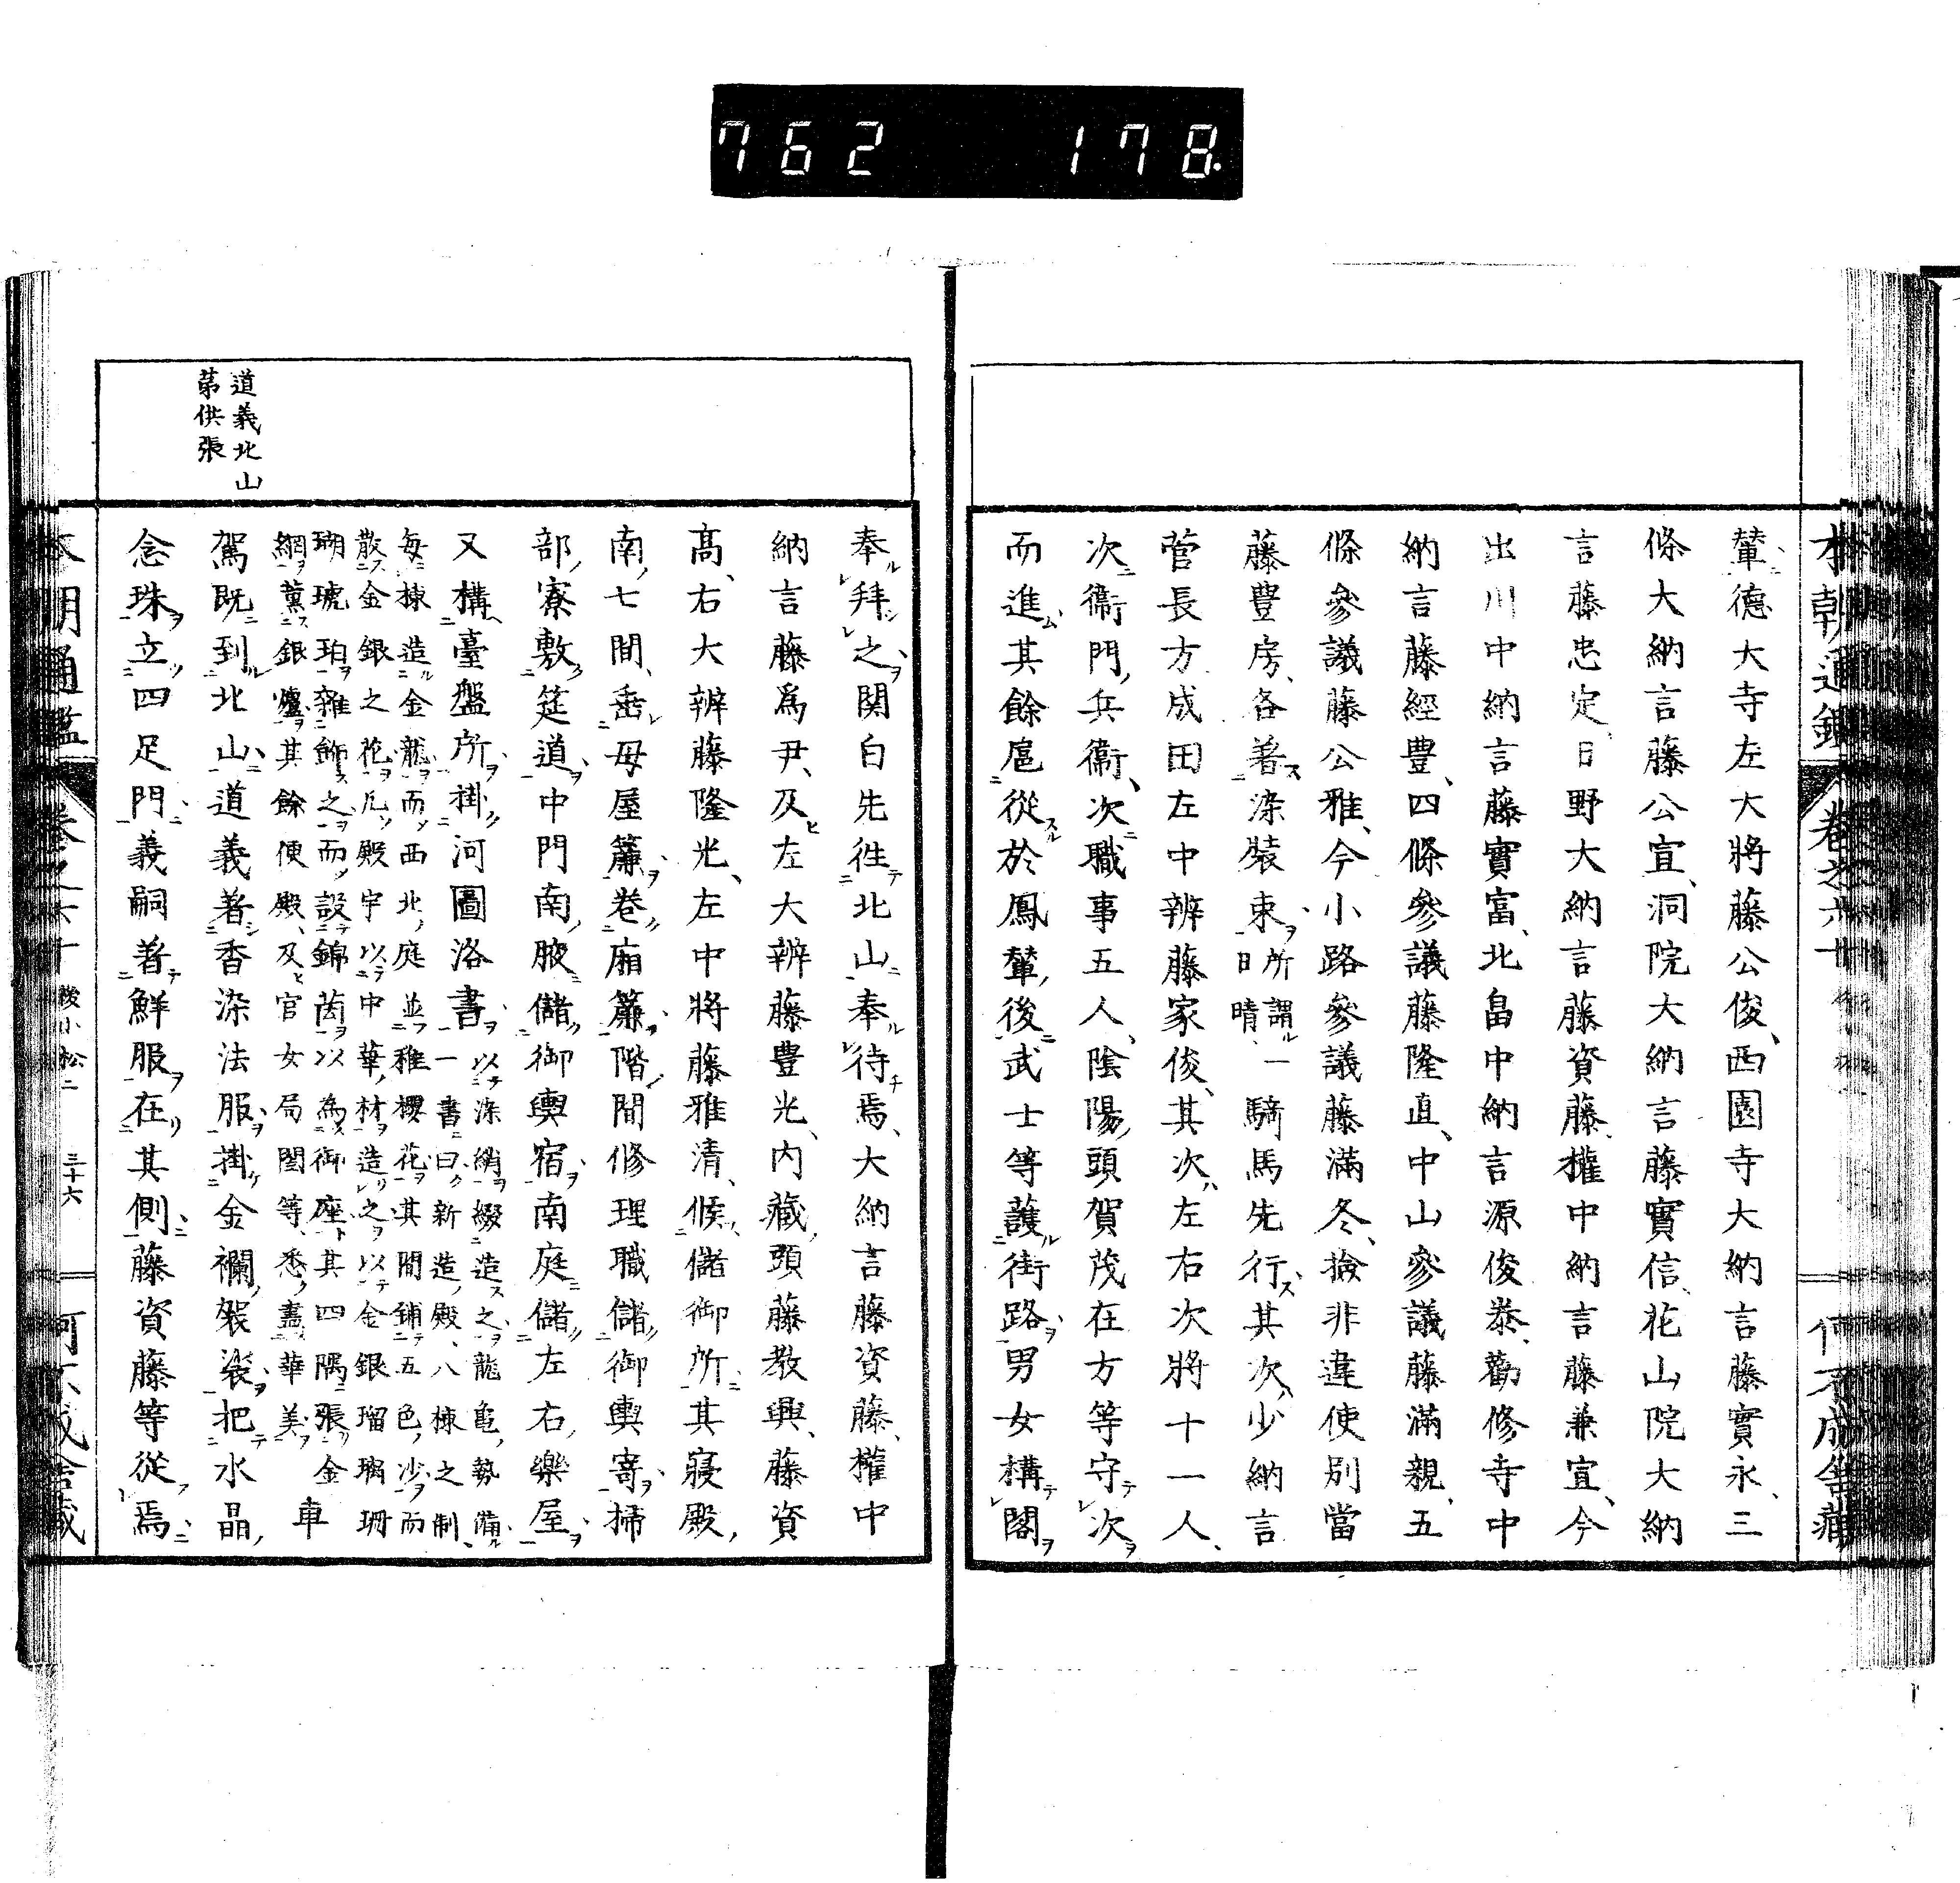 762 178
輦德大寺左大將藤公俊、西園寺大納言藤實永、三
條大納言藤公宣、洞院大納言藤實信、花山院大納
言藤忠定、日野大納言藤資藤、權中納言藤兼宣、今
出川中納言藤實富、北畠中納言源俊泰、勸修寺中
納言藤經豊、四條參議藤隆直、中山參議藤滿親、五
條參議藤公雅、今小路參議藤滿冬、撿非違使別當
藤豊房、各著染裝束、所謂日晴、一騎馬先行、其次、少納言
菅長方成田左中辨藤家俊、其次、左右次將十一人、
次衞門、兵衞、次職事五人、陰陽頭賀茂在方等守次
而進其餘扈從於鳳輦、後武士等護街路、男女構閣
奉拜之、関白先徃北山奉待焉、大納言藤資藤、權中
納言藤爲尹、及左大辨藤豊光、内藏頭藤教興、藤資
高、右大辨藤隆光、左中將藤雅清、候儲御所、其寢殿
南七間、垂母屋簾卷廂簾、階間修理職儲御輿寄、掃
部寮敷筵道、中門南腋儲御輿宿、南庭儲左右樂屋、
又構臺盤所、掛河圖洛書、以染綃綴造之、龍亀勢備、
一書曰、新造殿、八棟之制、
每棟造金龍而西北庭並稚櫻花其間鋪五色沙而
散金銀之花凡殿宇以中華材造之以金銀瑠璃珊
瑚琥珀雜飾之而設錦茵以為御座其四隅張金
網薰銀爐其餘便殿及官女局閤等悉盡華美 車
駕既到北山、道義著香染法服、掛金襴袈裟、把水晶
念珠立四足門、義嗣著鮮服在其側、藤資藤等從焉、
道義北山
第供張
三十六